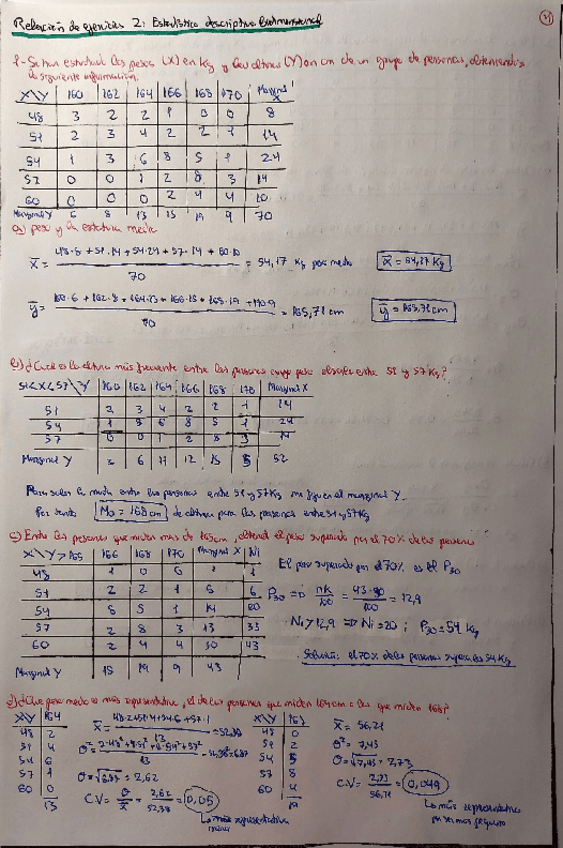 Relación de ejercicios 2: Estadística descriptiva bidimensional
1- Se han estudiado los pesos (X) en Kg y las alturas (Y) en cm de un grupo de personas, obteniendo
la siguiente información.
X\Y 160 162 164 166 168 170 Marginal X
48 3 2 2 1 0 0 8
51 2 3 4 2 2 1 14
54 1 3 6 8 5 1 24
57 0 0 1 2 8 3 14
60 0 0 0 2 4 4 10
Marginal Y 6 8 13 15 19 9 70
a) peso y la estatura media
x̄ = 48·8 + 51·14 + 54·24 + 57·14 + 60·10 / 70 = 54,17 Kg peso medio x̄ = 54,17 Kg
ȳ = 160·6 + 162·8 + 164·13 + 166·15 + 168·19 + 170·9 / 70 = 165,71 cm ȳ = 165,71 cm
b) ¿Cuál es la altura más frecuente entre las personas cuyo peso oscila entre 51 y 57 Kg?
51<X<57\Y 160 162 164 166 168 170 Marginal X
51 2 3 4 2 2 1 14
54 1 3 6 8 5 1 24
57 0 0 1 2 8 3 14
Marginal Y 3 6 11 12 15 5 52
Para saber la moda entre las personas entre 51 y 57 Kg me fijo en el marginal Y.
Por tanto Mo = 168 cm de altura para las personas entre 51 y 57 Kg
c) Entre las personas que miden más de 165 cm, obtened el peso superado por el 70% de las personas
X\Y>165 166 168 170 Marginal X Ni
48 1 0 0 1 1
51 2 2 1 5 6
54 8 5 1 14 20
57 2 8 3 13 33
60 2 4 4 10 43
Marginal Y 15 19 9 43
El peso superado por el 70% es el P30
P30 => nk/100 = 43·30/100 = 12,9
Ni > 12,9 => Ni = 20 ; P30 = 54 Kg
Solución: el 70% de las personas supera los 54 Kg
d) ¿Qué peso medio es más representativo, el de las personas que miden 164 cm o las que miden 168?
X\Y 164
48 2
51 4
54 6
57 1
60 0
13
x̄ = 48·2+51·4+54·6+57·1 / 13 = 52,38
σ = √6,87 = 2,62
C.V = σ/x̄ = 2,62/52,38 = 0,05
X\Y 168
48 0
51 2
54 5
57 8
60 4
19
x̄ = 56,21
σ² = 7,43
σ = √7,43 = 2,73
C.V = 2,73/56,21 = 0,049
Lo más representativa
Lo más representativa